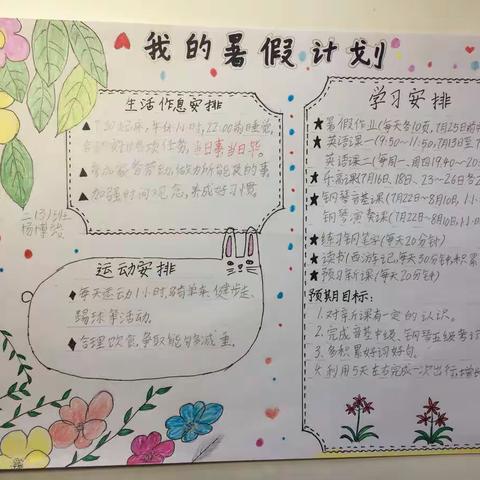 我的暑假计划
生活作息安排
▲ 起床,午休1小时,22:00前睡觉,
任务,当日事当日毕。
▲参加家务劳动,做力所能及的事
▲加强时间观念,养成好习惯。
二(3)班
杨博
运动安排
◆每天运动1小时,骑单车、健步走、
踢球等活动。
◆合理饮食,争取能够减重。
学习安排
★暑假作业(每天各10页,7月25日前
★英语课一(9:50-11:50,7月13日至
英语课二(每周一、周四9:40-20:
★乐高课(7月16日、18日、23-26日各
★钢琴音基课(7月22日-8月10日,
钢琴演奏课(7月22日-8月10日,
★练习钢笔字(每天20分钟)
★读书(西游记),每天50分钟,积累
★预习新课(每天20分钟)
预期目标:
1.对新课有一定的认识。
2.完成音基中级、钢琴五级考试
3.多积累好词好句。
4.利用5天左右完成一次出行,增长